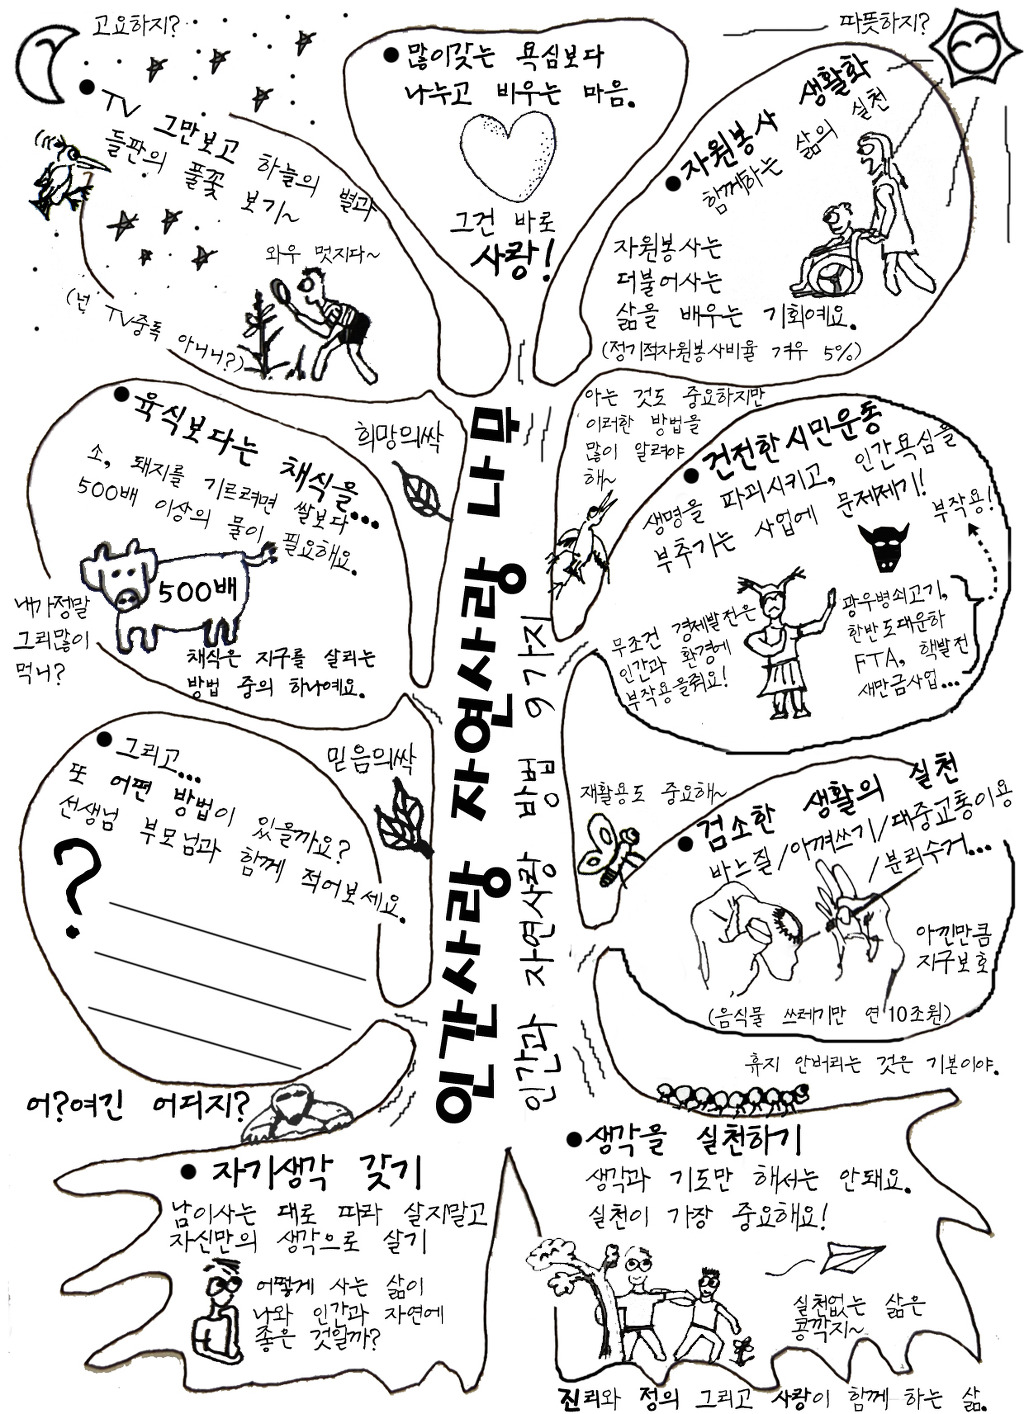 고요하지?
따뜻하지?
● 많이갖는 욕심보다
나누고 비우는 마음.
그건 바로
사랑!
● TV 그만보고 하늘의 별과
들판의 풀꽃 보기~
와우 멋지다~
(넌 TV중독 아니니?)
● 자원봉사 생활화
함께하는 삶의 실천
자원봉사는
더불어사는
삶을 배우는 기회예요.
(정기적자원봉사비율 겨우 5%)
희망의싹
● 육식보다는 채식을...
소, 돼지를 기르려면 쌀보다
500배 이상의 물이 필요해요.
500배
내가정말
그리많이
먹니?
채식은 지구를 살리는
방법 중의 하나예요.
아는 것도 중요하지만
이러한 방법을
많이 알려야
해~
● 건전한 시민운동
생명을 파괴시키고, 인간욕심을
부추기는 사업에 문제제기!
부작용!
무조건 경제발전은
인간과 환경에
부작용을줘요!
광우병쇠고기,
한반도대운하
FTA, 핵발전
새만금사업...
믿음의싹
● 그리고...
또 어떤 방법이 있을까요?
선생님 부모님과 함께 적어보세요.
?
재활용도 중요해~
● 검소한 생활의 실천
바느질/아껴쓰기/대중교통이용
/분리수거...
아낀만큼
지구보호
(음식물 쓰레기만 연10조원)
휴지 안버리는 것은 기본이야.
인간사랑 자연사랑 나무
인간과 자연사랑 방법 9가지
어?여긴 어디지?
● 자기생각 갖기
남이사는 대로 따라 살지말고
자신만의 생각으로 살기
어떻게 사는 삶이
나와 인간과 자연에
좋은 것일까?
● 생각을 실천하기
생각과 기도만 해서는 안돼요.
실천이 가장 중요해요!
실천없는 삶은
콩깍지~
진리와 정의 그리고 사랑이 함께 하는 삶.